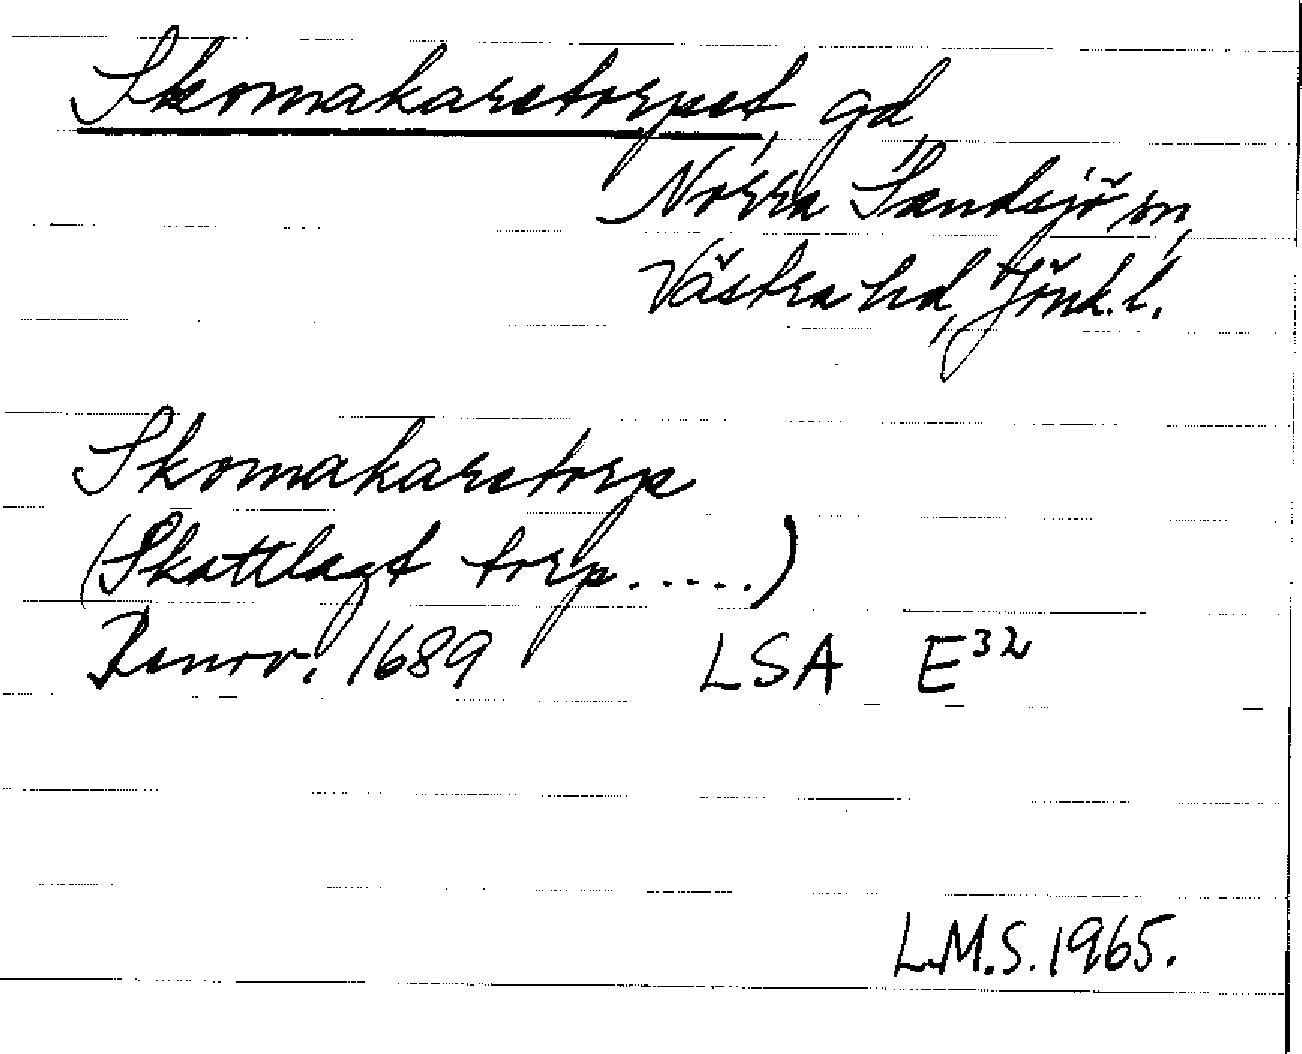 Skomakaretorpet, gd,
Norra Sandsjö sn,
Västra hd, Jönk. l.
Skomakaretorp
(Skattlagt torp.....)
Renov. 1689 LSA E³²
L.M.S. 1965.